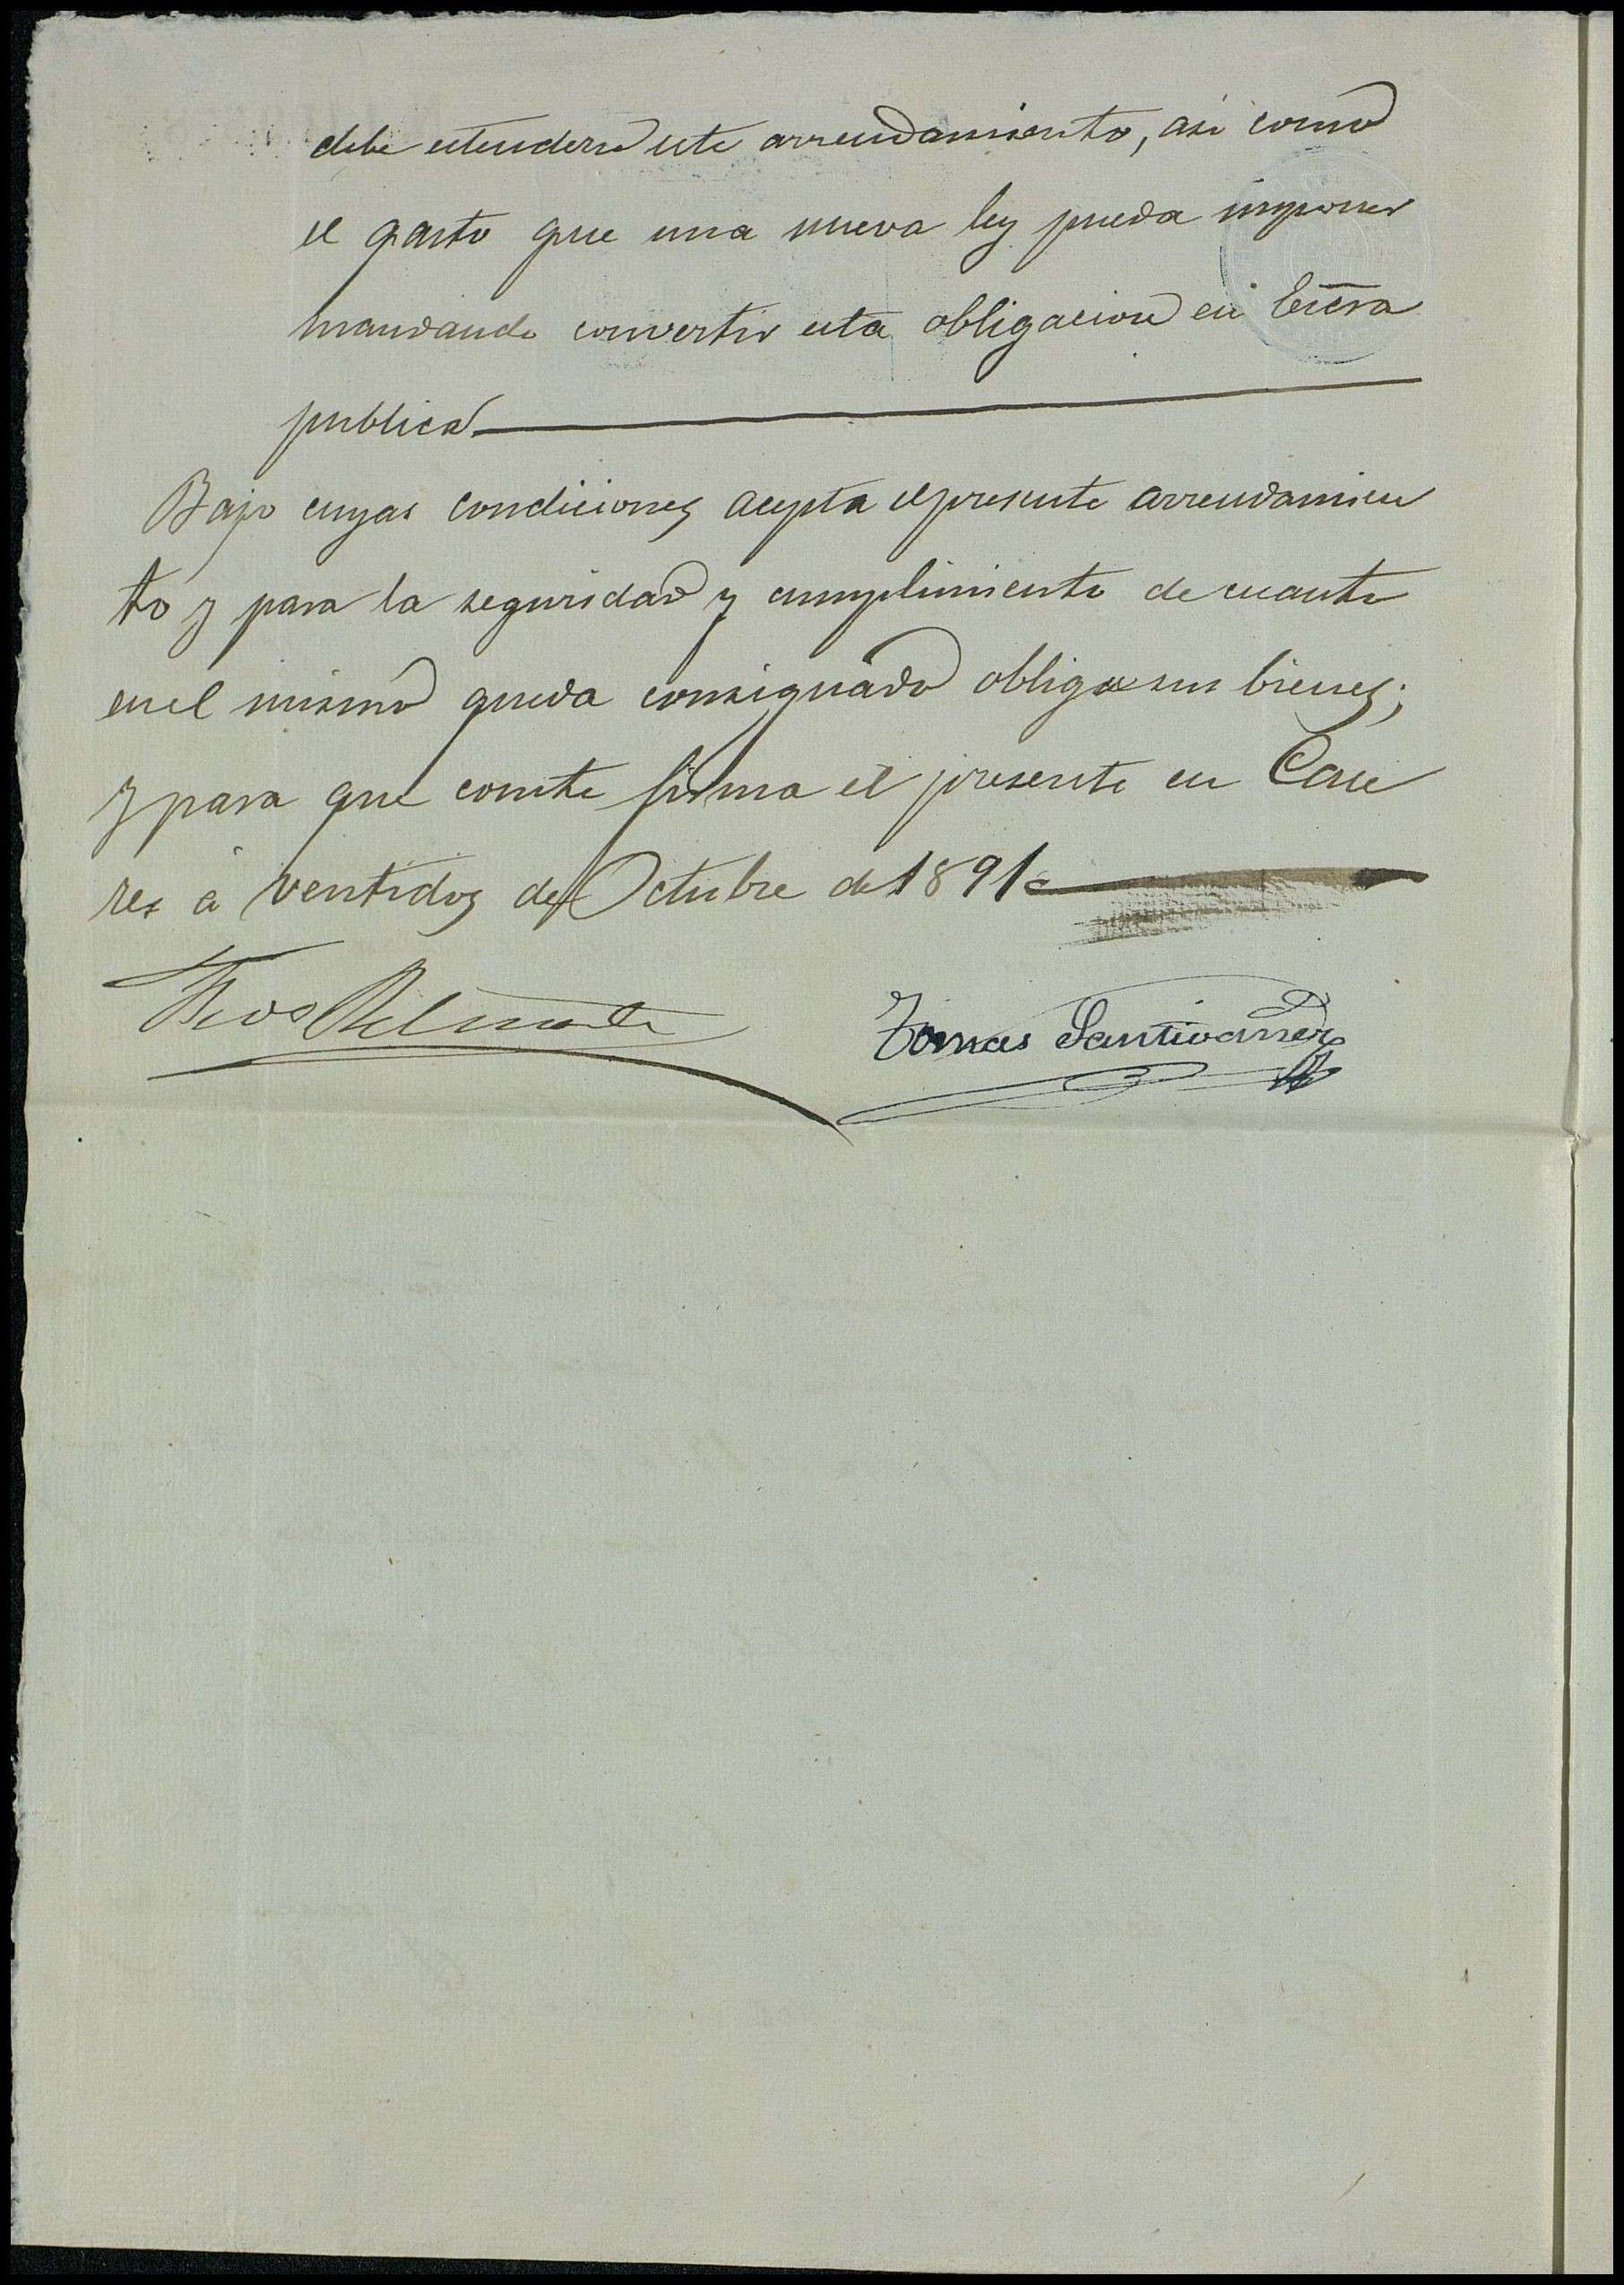 debe estenderse este arrendamiento, asi como
el gasto que una nueva ley pueda imponer
mandando convertir esta obligacion en Escra
publica
Bajo cuyas condiciones acepta el presente arrendamien
to y para la seguridad y cumplimiento de cuanto
en el mismo queda consignado obliga sus bienes;
y para que conste firma el presente en Cace
res á ventidos de Octubre de 1891
Belmonte
Tomas Santivañez